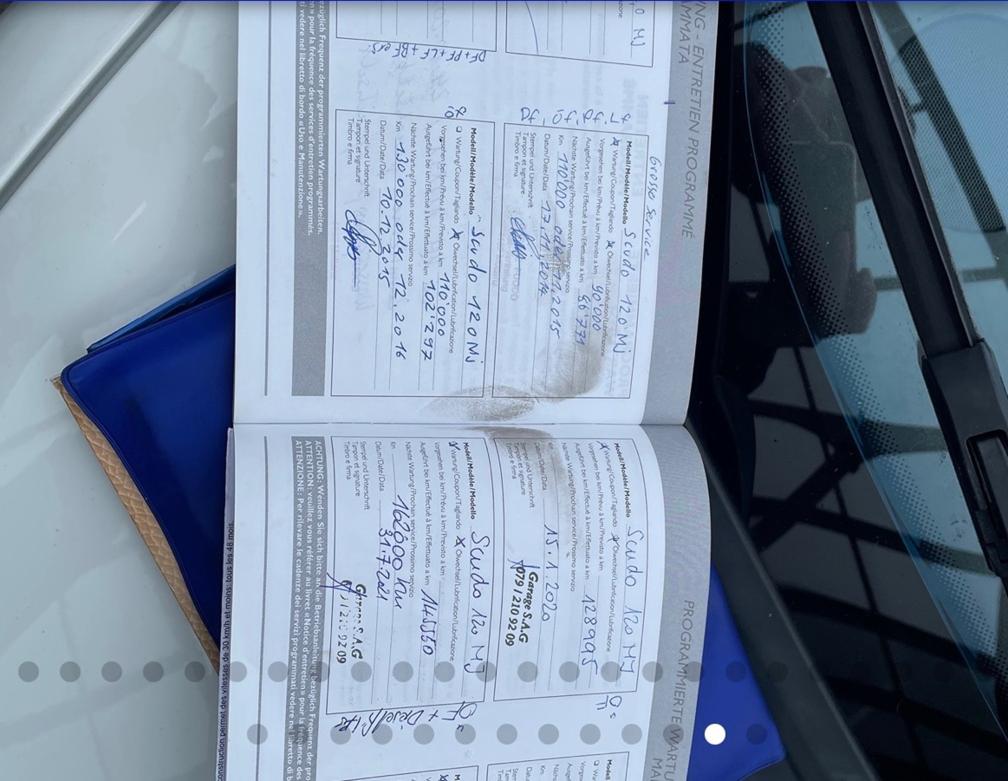 NG - ENTRETIEN PROGRAMMÉ
MMATA
Grosso Service
Modell/Modèle/Modello Scudo 120 MJ
Wartung/Coupon/Tagliando Ölwechsel/Lubrification/Lubrificazione
Vorgesehen bei km/Prévu à km/Previsto a km 90'000
Ausgeführt bei km/Effectué à km/Effettuato a km
Nächste Wartung/Prochain service/Prossimo servizio
Km 110'000 oder 11.2015
Datum/Date/Data 17.11.2014
Stempel und Unterschrift
Tampon et signature
Timbro e firma
DF+PF+LF+BF ers.
Modell/Modèle/Modello Scudo 120 MJ
Wartung/Coupon/Tagliando Ölwechsel/Lubrification/Lubrificazione
Vorgesehen bei km/Prévu à km/Previsto a km 110'000
Ausgeführt bei km/Effectué à km/Effettuato a km 102'297
Nächste Wartung/Prochain service/Prossimo servizio
Km 130'000 oder 12.2016
Datum/Date/Data 10.12.2015
Stempel und Unterschrift
Tampon et signature
Timbro e firma
bezüglich Frequenz der programmierten Wartungsarbeiten.
» pour la fréquence des services d'entretien programmés.
ti vedere nel libretto di bordo «Uso e Manutenzione».
PROGRAMMIERTE WARTU
MA
Modell/Modèle/Modello Scudo 120 MJ
Wartung/Coupon/Tagliando Ölwechsel/Lubrification/Lubrificazione
Vorgesehen bei km/Prévu à km/Previsto a km
Ausgeführt bei km/Effectué à km/Effettuato a km 128995
Nächste Wartung/Prochain service/Prossimo servizio
Km
Datum/Date/Data 15.1.2020
Stempel und Unterschrift
Tampon et signature
Timbro e firma
Garage S.A.G
079 / 210 92 09
Modell/Modèle/Modello Scudo 120 MJ
Wartung/Coupon/Tagliando Ölwechsel/Lubrification/Lubrificazione
Vorgesehen bei km/Prévu à km/Previsto a km
Ausgeführt bei km/Effectué à km/Effettuato a km 145550
Nächste Wartung/Prochain service/Prossimo servizio
Km 160000 km
Datum/Date/Data 31.7.2021
Stempel und Unterschrift
Tampon et signature
Timbro e firma
Garage S.A.G
210 92 09
ACHTUNG: Wenden Sie sich bitte an die Betriebsanleitung bezüglich Frequenz der
ATTENTION: veuillez vous référer au livret «Notice d'entretien» pour la fréquence
ATTENZIONE: Per rilevare le cadenze dei servizi programmati vedere nel libretto di b